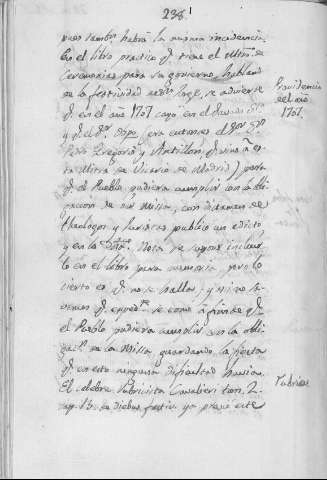 238.
pues tambn. habra la misma incidencia.
En el libro practico qe. tiene el Mtro. de
Ceremonias para su govierno, hablando
de la festividad de Sn. Jose, se advierte
qe. en el año 1707 cayó en el
y qe. el Sr. Obpo. era entonces el Sor. Dn.
Pedro Gregorio y Antillon, qe. vino a es
ta Mitra de Vicario de Madrid) para
qe. el Pueblo pudiera cumplir con la obli
gacion de oir Misa, con dictamen de
theologos y Juristas publicó un edicto,
y en la Nota se supone inclui
lo en el libro para memoria, pero lo
cierto es qe. no se halla; y si no te
nemos qe. se como a fin de qe.
el Pueblo pudiera cumplir con la obli
gacn. de la Misa, guardando la fiesta
qe. en esto ninguna dificultad havia.
El celebre Rubricista Cavalieri tom. 2.
cap. 13. de diebus festis ya previó este
Providencia
del año
1707.
Rubricas